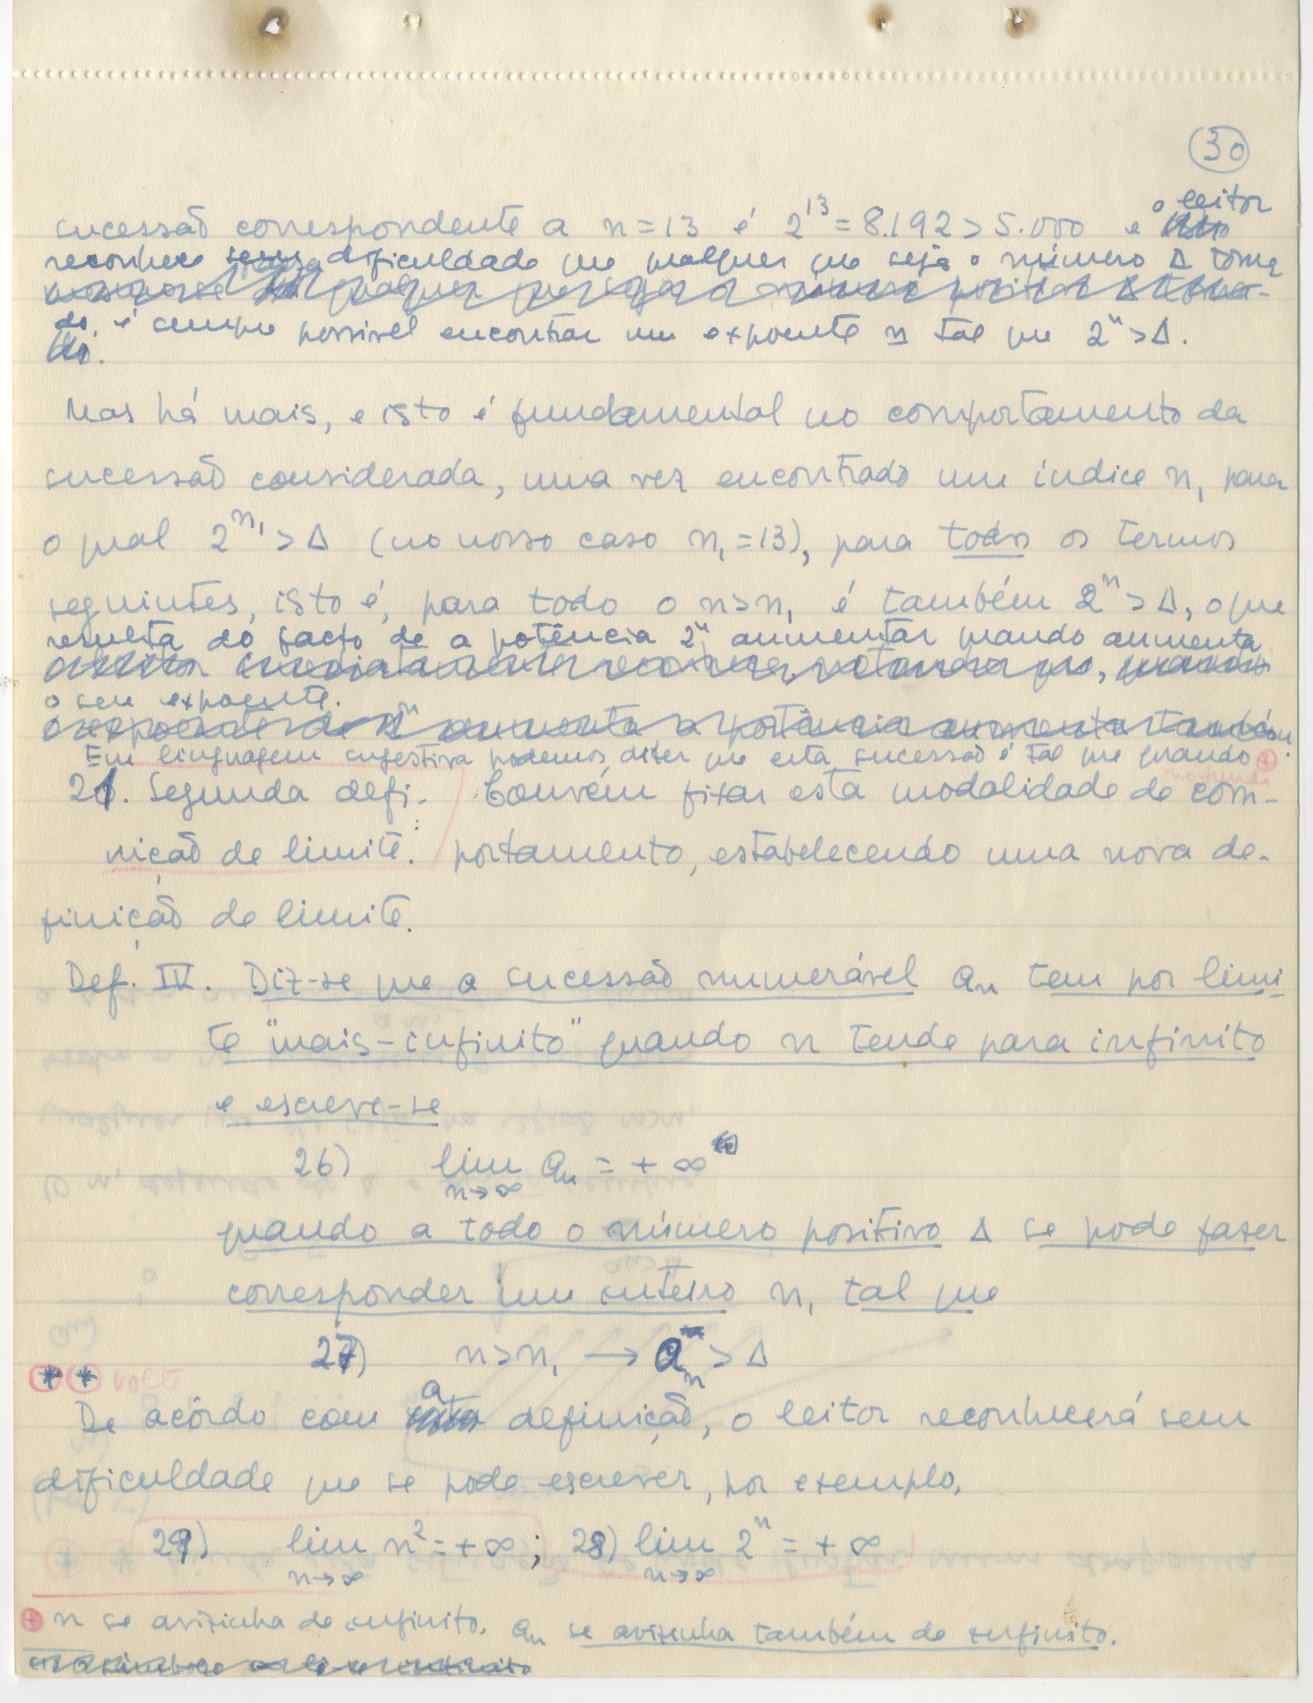 30
o leitor
sucessão correspondente a n=13 é 2¹³=8.192>5.000 e
reconhece sem dificuldade que qualquer que seja o número Δ toma-
do, é sempre possível encontrar um expoente n tal que 2ⁿ>Δ.
Mas há mais, e isto é fundamental no comportamento da
sucessão considerada, uma vez encontrado um índice n₁ para
o qual 2ⁿ¹>Δ (no nosso caso n₁=13), para todos os termos
seguintes, isto é, para todo o n>n₁ é também 2ⁿ>Δ, o que
resulta do facto de a potência 2ⁿ aumentar quando aumenta
o seu expoente.
Em linguagem sugestiva podemos dizer que esta sucessão é tal que quando ⊕
21. Segunda defi- Convém fixar esta modalidade de com-
nição de limite. portamento, estabelecendo uma nova de-
finição de limite.
Def. IV. Diz-se que a sucessão numerável aₙ tem por limi-
te "mais-infinito" quando n tende para infinito
e escreve-se
26) lim aₙ = + ∞
n→∞
quando a todo o número positivo Δ se pode fazer
corresponder um inteiro n₁ tal que
27) n>n₁ → aₙ > Δ
* *
De acôrdo com a definição, o leitor reconhecerá sem
dificuldade que se pode escrever, por exemplo,
29) lim n²=+∞; 28) lim 2ⁿ = +∞
n→∞ n→∞
⊕ n se avizinha de infinito, aₙ se avizinha também de infinito.